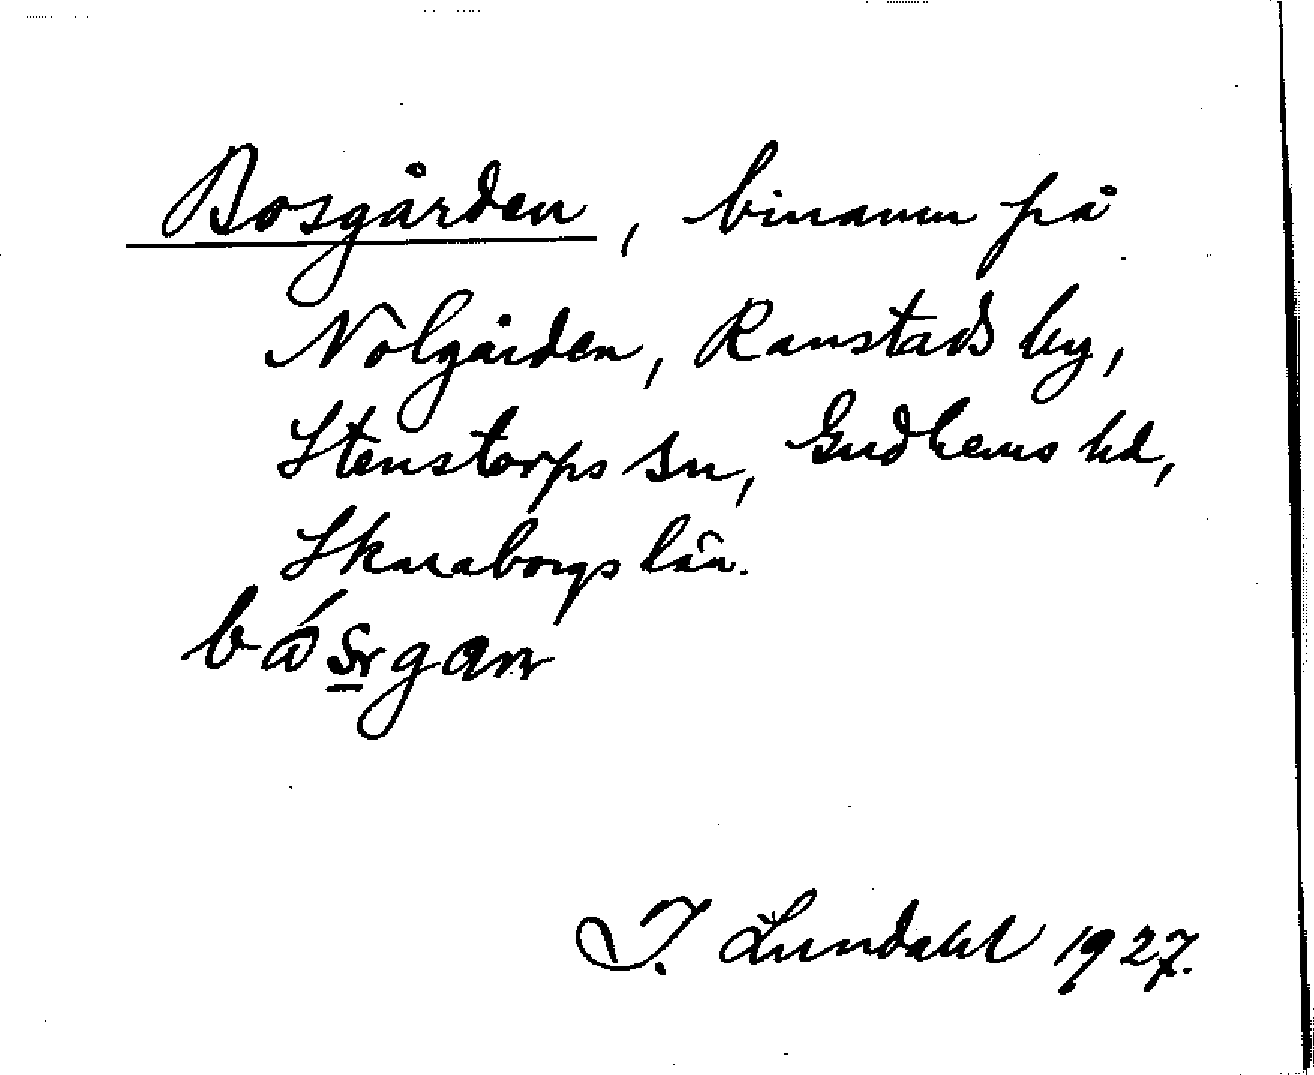 Bosgården, binamn på
Nolgården, Ranstads by,
Stenstorps sn, Gudhems hd,
Skaraborgs län.
I. Lundahl 1927.